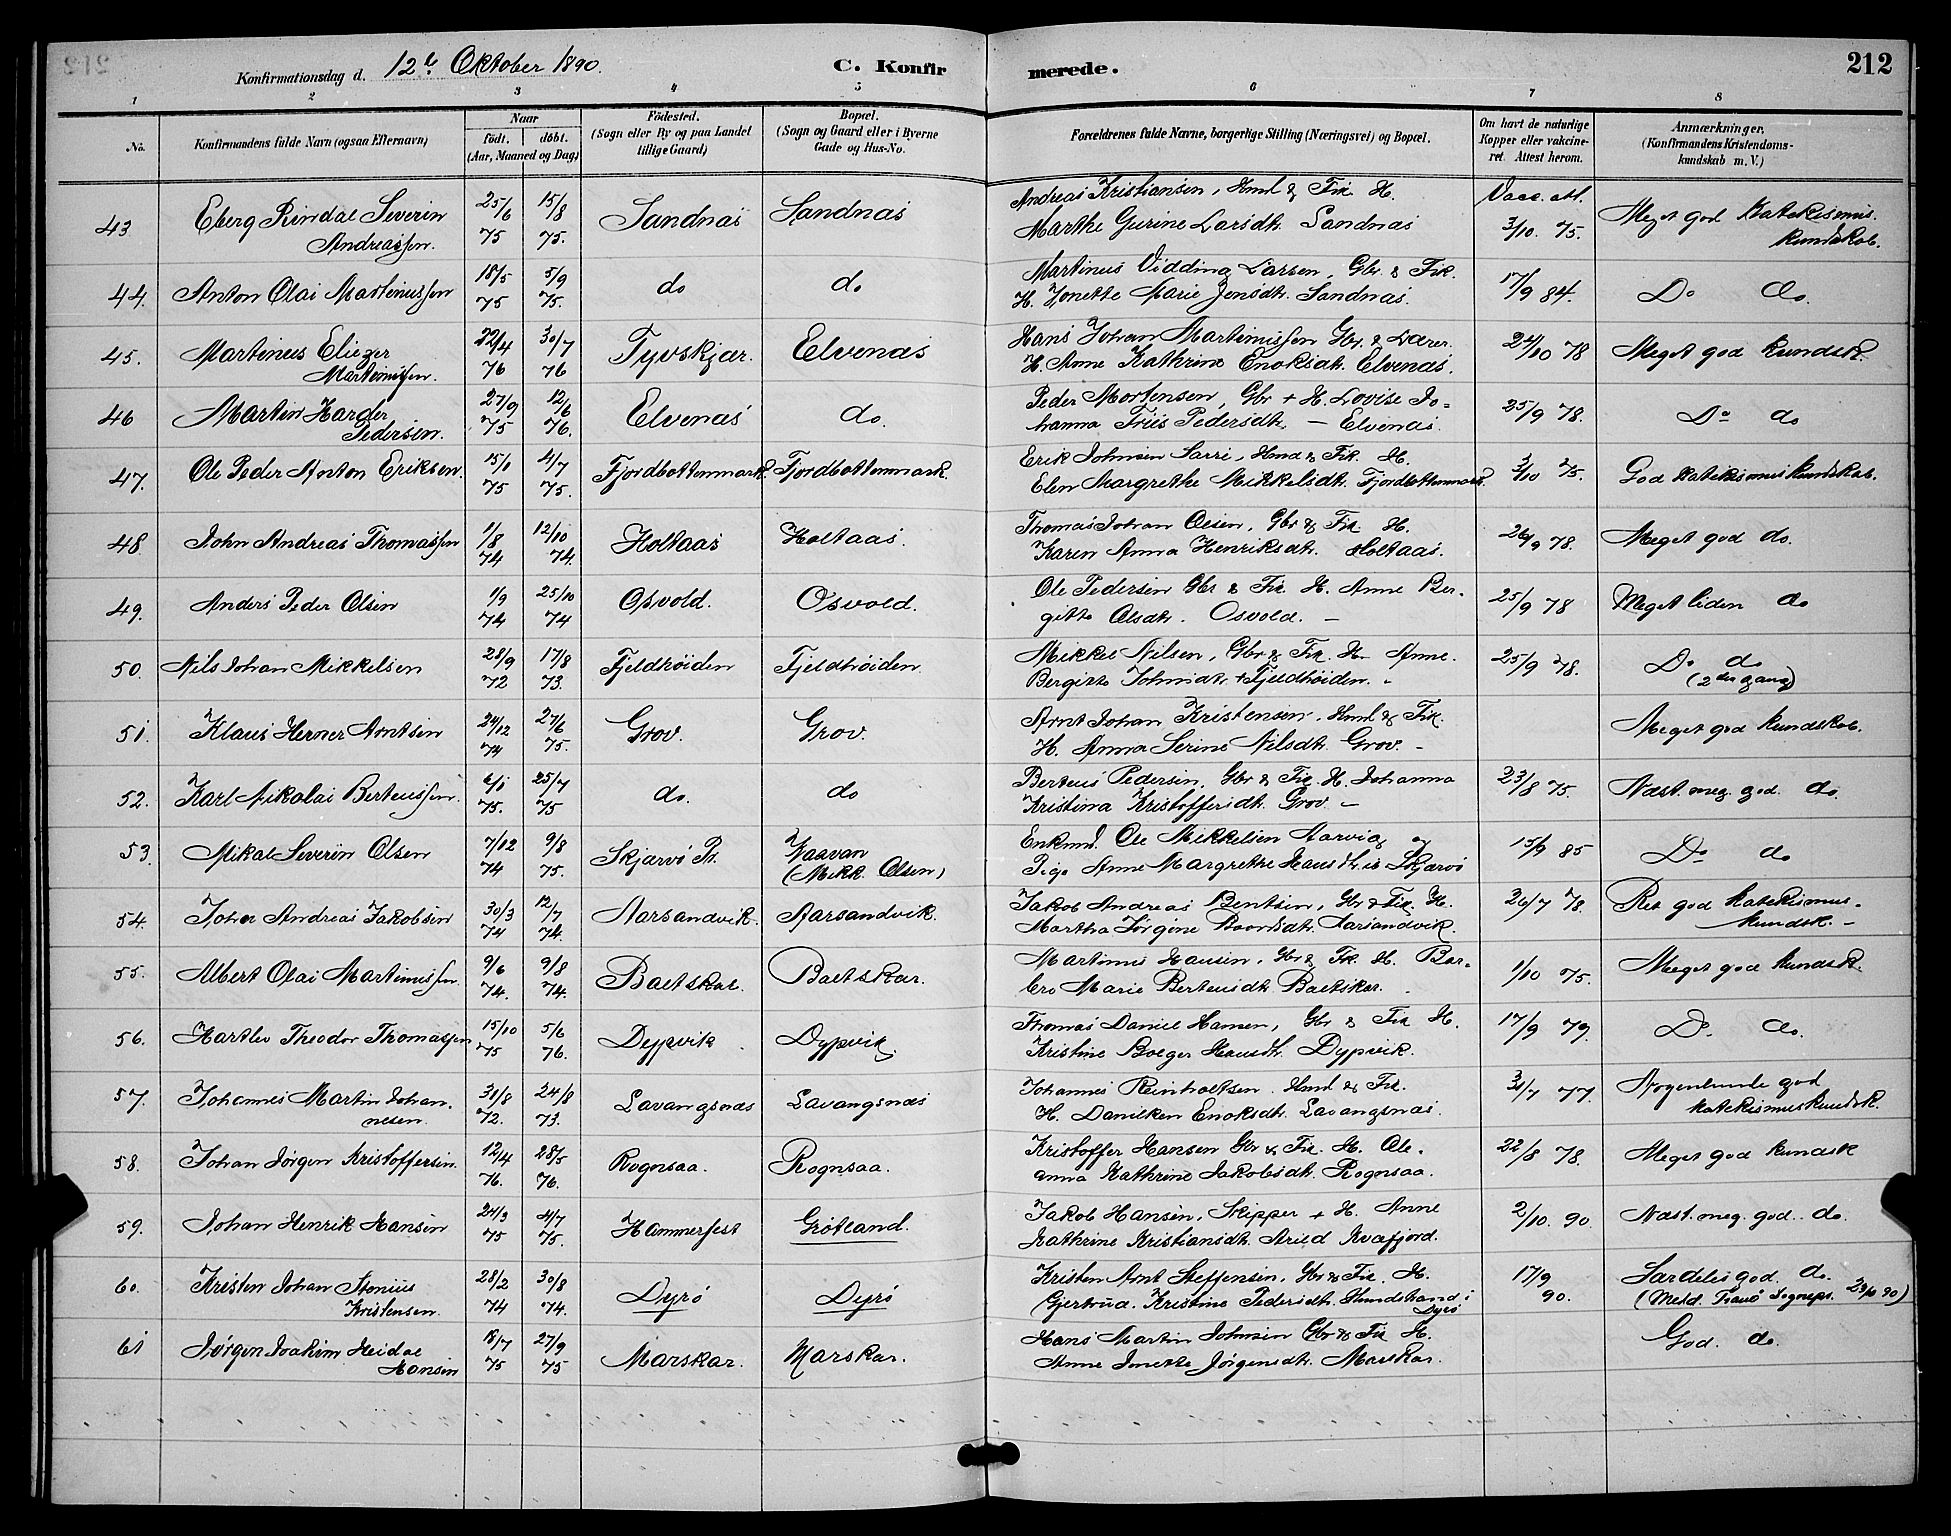 Konfirmationsdag d. 12te Oktober 1890. C. Konfirmerede. 212
1 2 3 4 5 6 7 8
No. Konfirmandens fulde Navn (ogsaa Efternavn) Naar födt. döbt. (Aar, Maaned og Dag) Födested. (Sogn eller By og paa Landet tillige Gaard) Bopæl. (Sogn og Gaard eller i Byerne Gade og Hus-No. Forældrenes fulde Navne, borgerlige Stilling (Næringsvei) og Bopæl. Om havt de naturlige Kopper eller vakcineret. Attest herom. Anmærkninger. (Konfirmandens Kristendomskundskab m. V.)
43 Eberg Rindal Severin 25/6 15/8 Sandnæs Sandnæs Andreas Kristiansen, Hmd & Fisk. H. Vacc. att. Meget god Katekismus-
Andreassen. 75 75. Marthe Gurine Larsdtr. Sandnæs 3/10. 75. kundskab.
44. Anton Olai Martinussen 18/5 5/9 do do. Martinus Vidding Larsen, Gbr. & Fisk. 17/9 84. Do do.
75 75. H. Jonette Marie Jensdtr. Sandnæs.
45. Martinus Eliezer 22/4 30/7 Tyvskjær. Elvenæs Hans Johan Martinussen Gbr. & Lærer. 24/10 78 Meget god kundsk.
Martinussen. 76 76 H. Anne Kathrine Enoksdtr. Elvenæs.
46 Martin Harder 27/9 12/6 Elvenæs do. Peder Mortensen, Gbr + H. Lovise Jo= 25/9 78. Do do
Pedersen. 75 76. hanna Friis Pedersdtr. — Elvenæs.
47. Ole Peder Anton Eriksen. 15/1 4/7 Fjordbottenmark. Fjordbottenmark. Erik Johnsen Sarri, Hmd & Fisk. H. 3/10 75. God Katekismuskundskab.
75 75. Elen Margrethe Mikkelsdtr. Fjordbottenmark.
48. John Andreas Thomassen 1/8 12/10 Holtaas Holtaas. Thomas Johan Olsen, Gbr & Fisk. H. 26/9 78. Meget god do.
74 74. Karen Anna Henriksdtr. Holtaas.
49. Anders Peder Olsen 1/9 25/10 Osvold. Osvold. Ole Pedersen Gbr & Fisk H. Anne Ber- 25/9 78 Meget liden do
74 74 gitte Olsdtr. Osvold. —
50. Nils Johan Mikkelsen 28/9 17/8 Fjeldhøiden Fjeldhøiden. Mikkel Nilsen, Gbr & Fisk. H. Anne 25/9 78. Do do
72 73. Bergitte Johnsdtr. Fjeldhøiden. - (2den gang)
51. Klaus Herner Arntsen 24/12 27/6 Grov. Grov. Arnt Johan Kristensen, Hmd & Fisk. Meget god kundskab.
74 75. H. Anna Serine Nilsdtr. Grov. -
52. Karl Nikolai Berteussen. 6/1 25/7 do. do Berteus Pedersen, Gbr & Fisk. H. Johanna 23/8 75. Næst. meg. god. do.
75. 75 Kristina Kristoffersdtr. Grov. —
53. Mikal Severin Olsen 7/12 9/8 Skjærvø P. Vaavan Enkmd. Ole Mikkelsen Aarvig og 15/9 85 Do do
74 75. (Mikk. Olsen) Pige Anne Margrethe Hansdtr. Skjærvø
54. Johan Andreas Jakobsen 30/3 12/7 Aarsandvik. Aarsandvik. Jakob Andreas Bentsen, Gbr & Fisk. H. 26/7 78. Ret god katekismus-
74 74. Martha Jørgine Baardsdtr. Aarsandvik. kundsk. —
55. Albert Olai Martinussen 9/6 9/8 Baltskar. Baltskar. Martinus Hansen, Gbr & Fisk. H. Bar- 1/10 75. Meget god kundsk.
74. 74. bro Marie Berteusdtr. Baltskar.
56. Hartlev Theodor Thomassen 15/10 5/6 Dypvik Dypvik. Thomas Daniel Hansen, Gbr & Fisk H. 17/9 79. Do do.
75 76. Kristine Boeger Hansdtr. Dypvik.
57. Johannes Martin Johan- 31/8 24/8 Lavangsnæs Lavangsnæs Johannes Reinholtsen. Hmd & Fisk. 31/7 77. Nogenlunde god
nesen. 72. 73. H. Danilken Enoksdtr. Lavangsnæs. katekismuskundsk.
58. Johan Jørgen Kristoffersen. 12/4 28/5 Rognsaa. Rognsaa. Kristoffer Hansen Gbr & Fisk. H. Ole- 22/8 78. Meget god kundsk
76. 76. anna Kathrine Jakobsdtr. Rognsaa.
59. Johan Henrik Hansen 24/3 4/7 Hammerfest Grøtland. Jakob Hansen, Skipper + H. Anne 2/10. 90. Næst. meg. god. do.
75 75. Kathrine Kristiansdtr. Kvæfjord.
60. Kristen Johan Stenius 28/2 30/8 Dyrø Dyrø Kristen Arnt Steffensen, Gbr & Fisk. H. 17/9 Særdeles god. do.
Kristensen. 74 74. Gjertrud Kristine Pedersdtr. Hundstrand i 90. (Meld. Tranø Sogneps. 23/10 90)
Dyrø
61 Jørgen Joakim Heidal 18/7 27/9 Marskar. Marskar. Hans Martin Johnsen Gbr & Fisk H. God. do.
Hansen 75 75 Anne Jonette Jørgensdtr. Marskar.